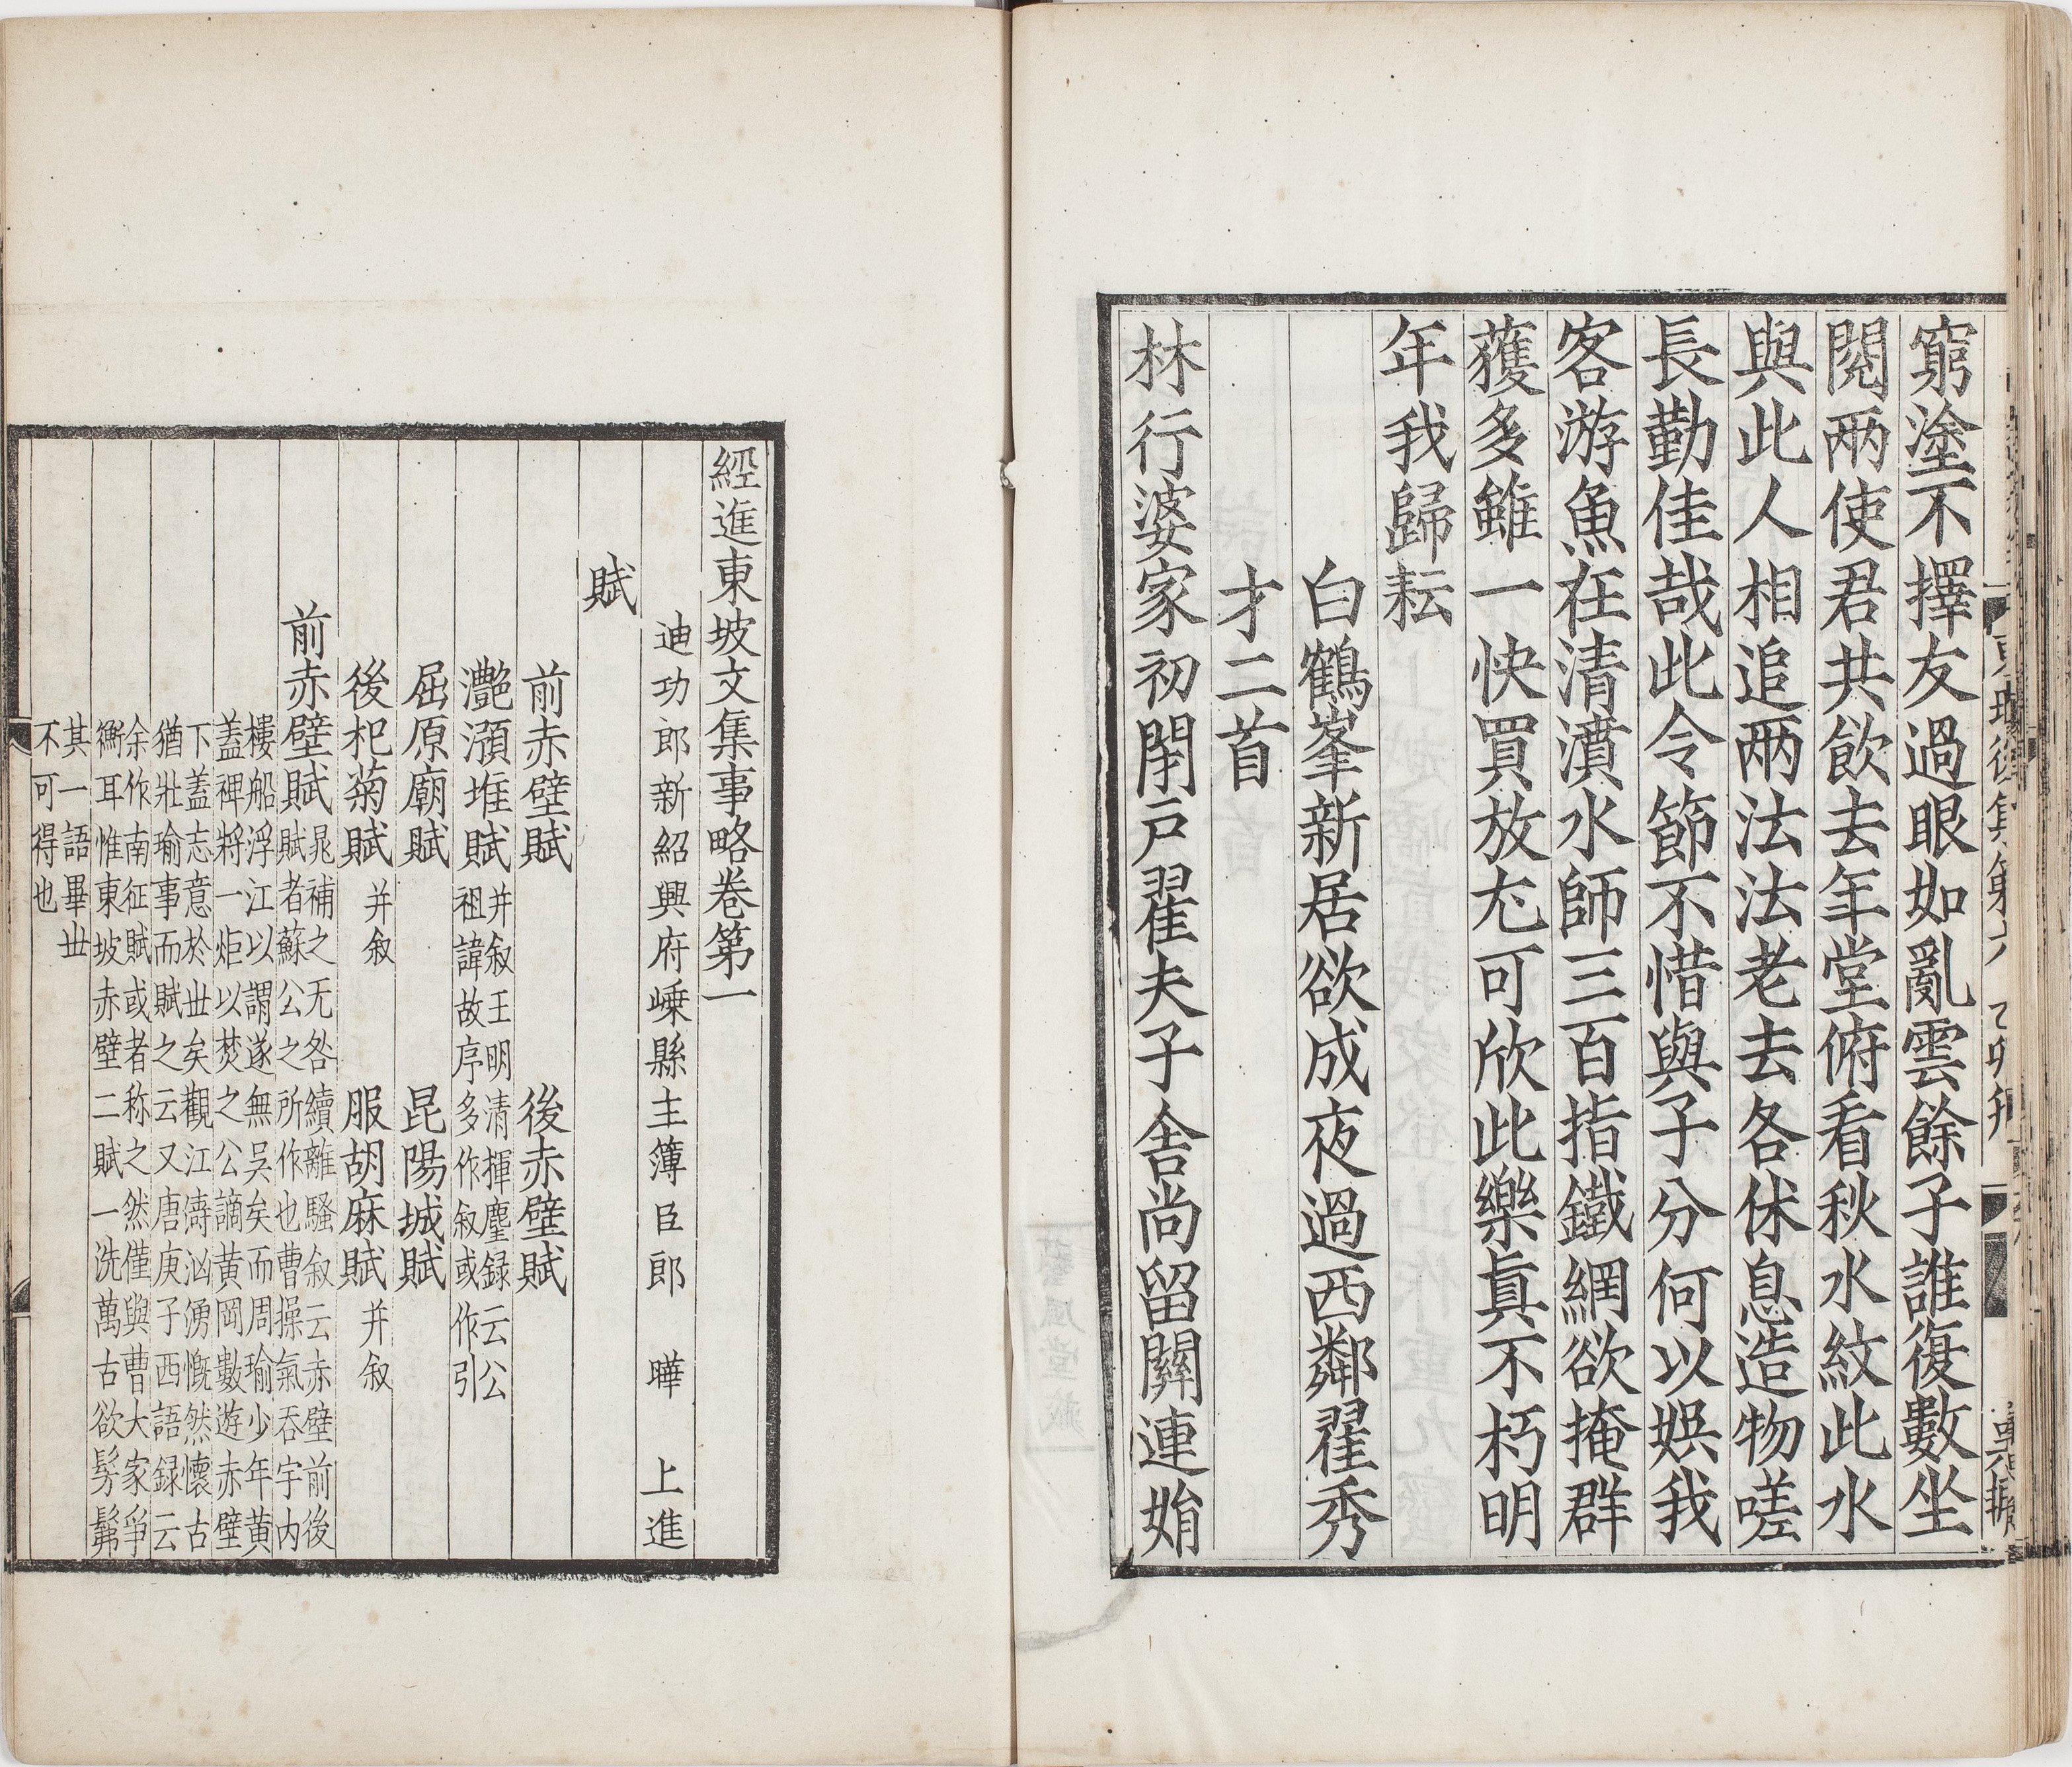 窮塗不擇友過眼如亂雲餘子誰復數坐
閱兩使君共飲去年堂俯看秋水紋此水
與此人相追兩法法老去各休息造物嗟
長勤佳哉此令節不惜與子分何以娯我
客游魚在清濆水師三百指鐵網欲掩群
蒦多雖一快買放尤可欣此樂真不朽明
年我歸耘
白鶴峯新居欲成夜過西鄰翟秀
才二首
林行婆家初閉戸翟夫子舍尚留關連娟
經進東坡文集事略卷第一
迪功郎新紹興府嵊縣主簿臣郎 曄 上進
賦
前赤壁賦 後赤壁賦
灔澦堆賦 并叙王明清揮麈録云公
祖諱故序多作叙或作引
屈原廟賦 昆陽城賦
後杞菊賦 并叙 服胡麻賦 并叙
前赤壁賦 晁補之无咎續離騷叙云赤壁前後
賦者蘇公之所作也曹操氣吞宇内
樓船浮江以謂遂無吳矣而周瑜少年黃
蓋裨將一炬以焚之公謫黃岡數遊赤壁
下蓋志意於丗矣觀江濤洶湧慨然懷古
猶壯瑜事而賦之云又唐庚子西語録云
余作南征賦或者称之然僅與曹大家爭
衡耳惟東坡赤壁二賦一洗萬古欲髣髴
其一語畢丗
不可得也